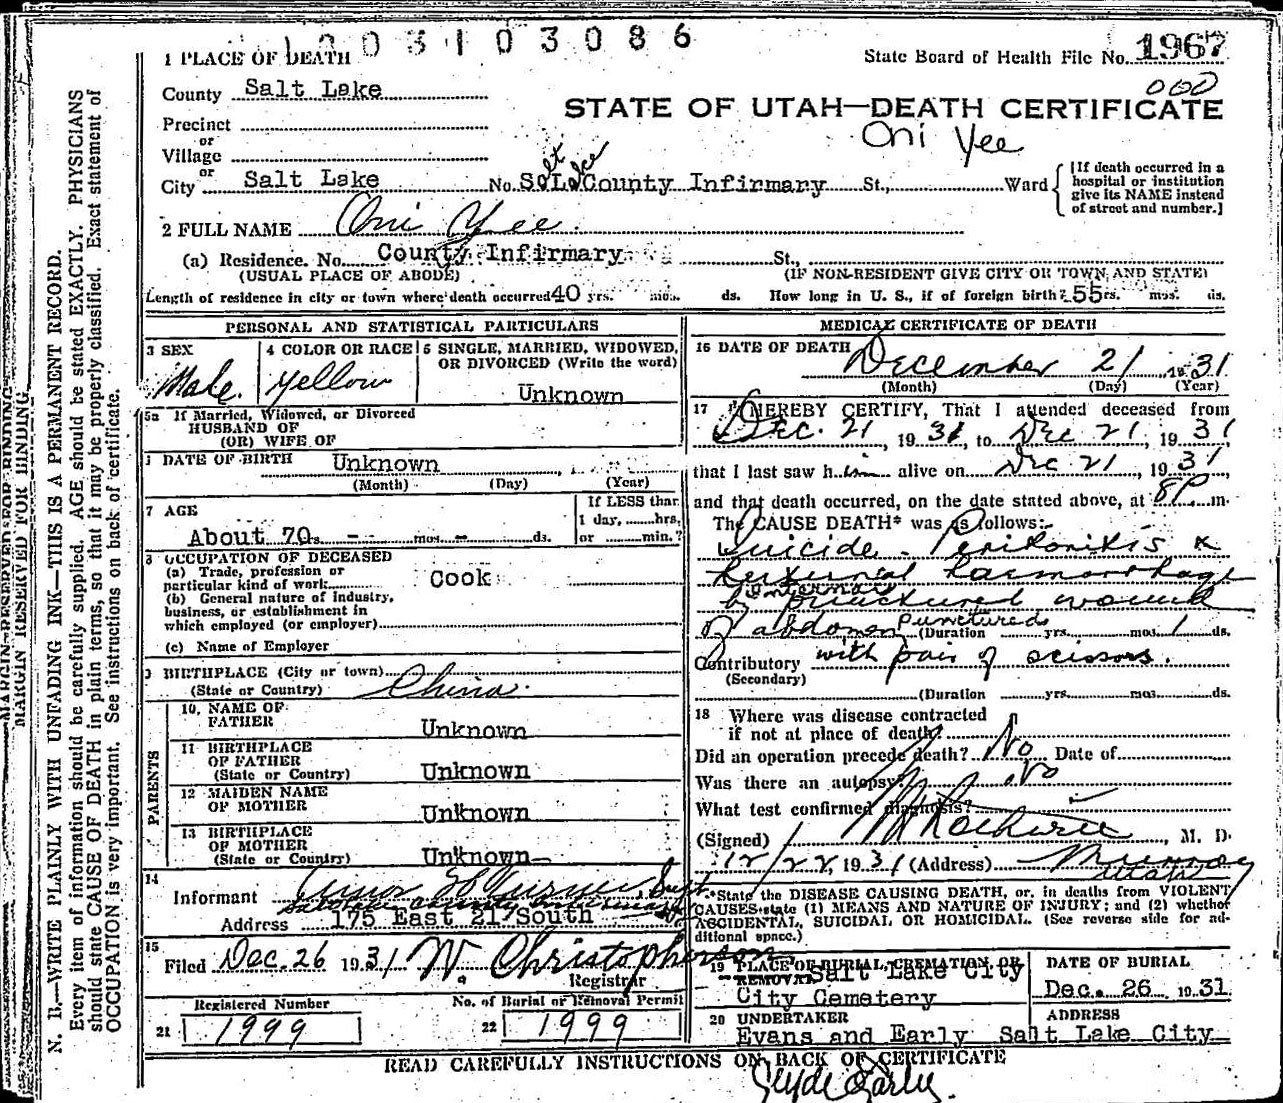 1003103086
1 PLACE OF DEATH
State Board of Health File No. 1967
000
County Salt Lake
STATE OF UTAH—DEATH CERTIFICATE
Oni Yee
Precinct
or
Village
or
City Salt Lake No. Salt Lake County Infirmary St., Ward
[If death occurred in a hospital or institution give its NAME instead of street and number.]
2 FULL NAME Oni Yee
(a) Residence. No. County Infirmary St.,
(USUAL PLACE OF ABODE) (IF NON-RESIDENT GIVE CITY OR TOWN AND STATE)
Length of residence in city or town where death occurred 40 yrs. mos. ds. How long in U. S., if of foreign birth? 55 rs. mos. ds.
PERSONAL AND STATISTICAL PARTICULARS
3 SEX
Male.
4 COLOR OR RACE
yellow
5 SINGLE, MARRIED, WIDOWED,
OR DIVORCED (Write the word)
Unknown
5a If Married, Widowed, or Divorced
HUSBAND OF
(OR) WIFE OF
DATE OF BIRTH Unknown
(Month) (Day) (Year)
7 AGE
About 70 s. - mos - ds.
If LESS than
1 day, hrs.
or min.?
8 OCCUPATION OF DECEASED
(a) Trade, profession or
particular kind of work Cook
(b) General nature of industry,
business, or establishment in
which employed (or employer)
(c) Name of Employer
9 BIRTHPLACE (City or town)
(State or Country) China.
PARENTS
10. NAME OF
FATHER Unknown
11 BIRTHPLACE
OF FATHER
(State or Country) Unknown
12 MAIDEN NAME
OF MOTHER Unknown
13 BIRTHPLACE
OF MOTHER
(State or Country) Unknown
14
Informant Supt.
Address 175 East 21 South
15
Filed Dec. 26 1931 W. Christopherson
Registrar
Registered Number
21 1999
No. of Burial or Removal Permit
22 1999
MEDICAL CERTIFICATE OF DEATH
16 DATE OF DEATH
December 21 1931
(Month) (Day) (Year)
17 I HEREBY CERTIFY, That I attended deceased from
Dec. 21, 1931, to Dec 21, 1931
that I last saw him alive on Dec 21, 1931
and that death occurred, on the date stated above, at 8P m.
The CAUSE DEATH* was as follows:
Suicide - Peritonitis &
internal haemorrhage
Internal
by punctured wound
of abdomen Punctured
(Duration yrs. mos. 1 ds.
Contributory with pair of scissors.
(Secondary)
(Duration yrs. mos. ds.
18 Where was disease contracted
if not at place of death?
Did an operation precede death? No Date of
Was there an autopsy? No
What test confirmed diagnosis?
(Signed) , M. D.
12/22, 1931 (Address) Murray
Utah
*State the DISEASE CAUSING DEATH, or, in deaths from VIOLENT
CAUSES state (1) MEANS AND NATURE OF INJURY; and (2) whether
ACCIDENTAL, SUICIDAL OR HOMICIDAL. (See reverse side for ad-
ditional space.)
19 PLACE OF BURIAL, CREMATION OR
REMOVAL Salt Lake City
City Cemetery
DATE OF BURIAL
Dec. 26 1931
20 UNDERTAKER
Evans and Early
ADDRESS
Salt Lake City
READ CAREFULLY INSTRUCTIONS ON BACK OF CERTIFICATE
Clyde Early.
MARGIN RESERVED FOR BINDING
N. B.—WRITE PLAINLY WITH UNFADING INK—THIS IS A PERMANENT RECORD.
Every item of information should be carefully supplied. AGE should be stated EXACTLY. PHYSICIANS
should state CAUSE OF DEATH in plain terms, so that it may be properly classified. Exact statement of
OCCUPATION is very important. See instructions on back of certificate.